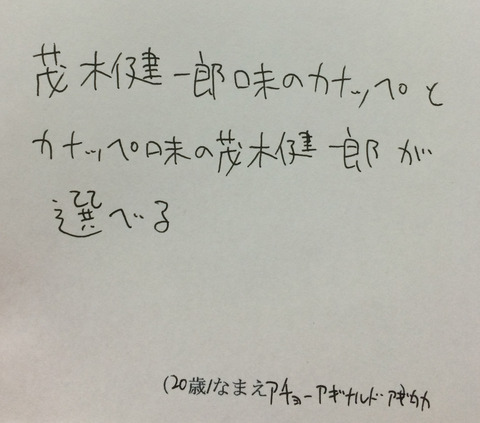 茂木健一郎味のカナッペと
カナッペ味の茂木健一郎が
選べる
(20歳/なまえアチョーアギナルド・アギカカ